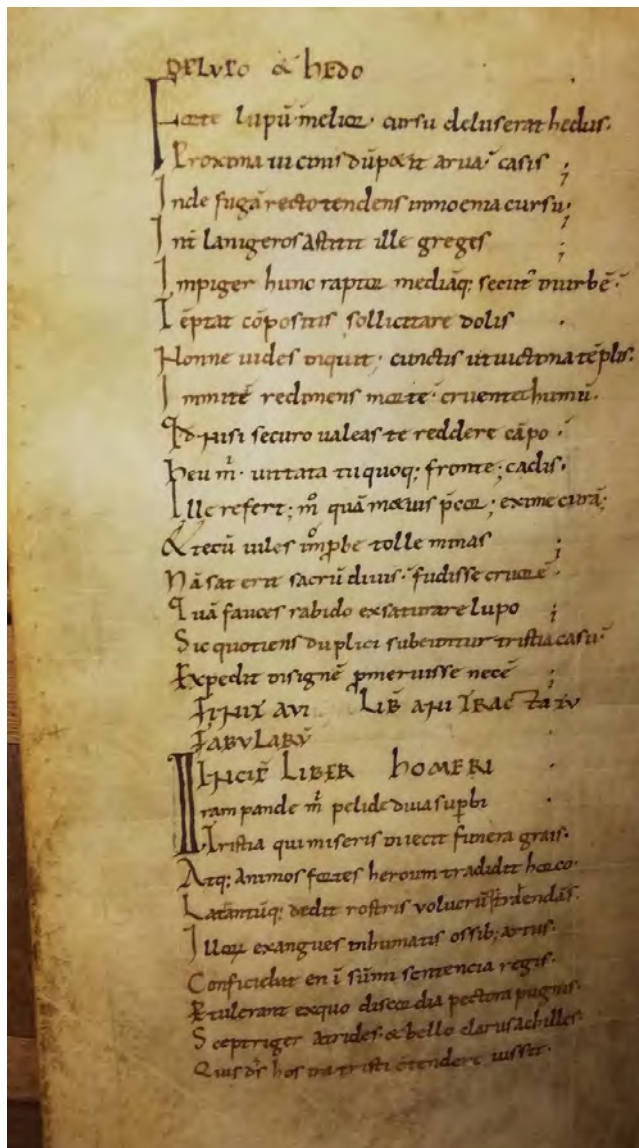 DE LVPO & hEDO
Forte lupū melior· cursu deluserat hedus·
Proxima uicinis dū petit arua· casis ;
Inde fugā recto tendens inmoenia cursu·
Int̄ lanigeros astitit ille greges
Impiger hunc raptor mediāq; secut' inurbē·
Tēptat cōpositis sollicitare dolis
Nonne uides inquit; cunctis ut uictima tēplis·
Immitē redimens morte· cruentet humū·
Qđ nisi securo ualeas te reddere cāpo·
Heu m· uittata tu quoq; fronte; cadis·
Ille refert; m̊ quā metuis p̄cor; exime curā;
& tecū uiles improbe tolle minas
Nā sat erit sacrū diuis· fudisse cruorē·
Quā fauces rabido exsaturare lupo ;
Sic quotiens duplici subeuntur tristia casu·
Expedit insignē ꝓmeruisse necē
FINIT AVI LIB̄ ANI TRACTATV
FABVLARV̄
INCIPT̄ LIBER hOMERI
Iram pande m pelide diua supbi
Tristia qui miseris iniecit funera grais·
Atq; animos fortes heroum tradidit horco·
Latrantūq; dedit rostris volucrū trahendas·
Illorꝫ exangues inhumatis ossib; artus·
Conficiebat en ī sūmi sentencia regis·
Etulerant exquo discordia pectora pugnis·
Sceptriger atrides· & bello clarus achilles·
Quis dꝭ hos ira tristi ctendere iussit·